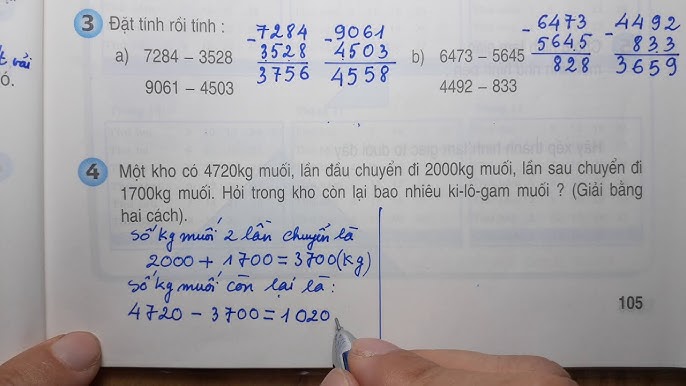 3 Đặt tính rồi tính :
a) 7284 – 3528
9061 – 4503
- 7284
3528
3756
- 9061
4503
4558
b) 6473 – 5645
4492 – 833
- 6473
5645
828
- 4492
833
3659
ó.
4 Một kho có 4720kg muối, lần đầu chuyển đi 2000kg muối, lần sau chuyển đi
1700kg muối. Hỏi trong kho còn lại bao nhiêu ki-lô-gam muối ? (Giải bằng
hai cách).
Số kg muối 2 lần chuyển là
2000 + 1700 = 3700 (kg)
Số kg muối còn lại là:
4720 – 3700 = 1020
105